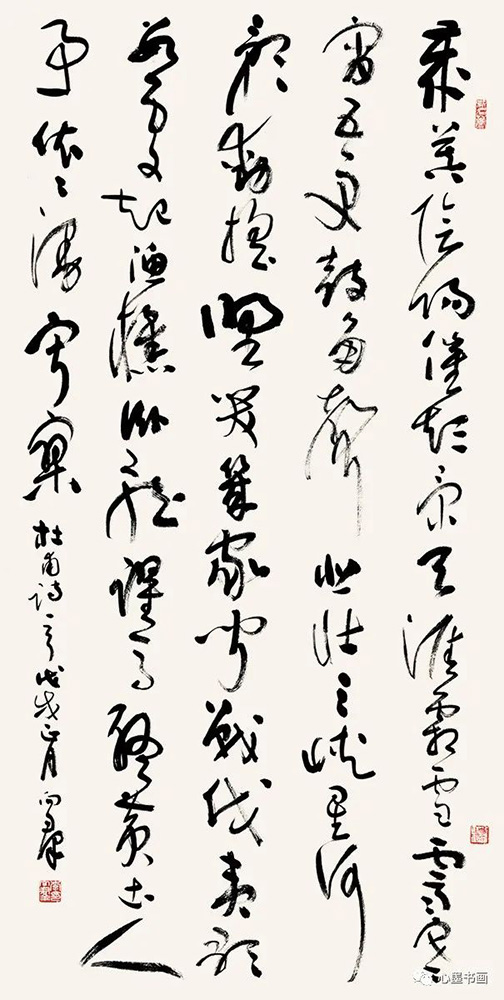 歲暮陰陽催短景天涯霜雪霽寒
宵五更鼓角聲悲壯三峽星河
影動搖野哭幾家聞戰伐夷歌
數處起漁樵臥龍躍馬終黃土人
事依々漫寂寥
杜甫詩一首戊戌正月
心墨书画